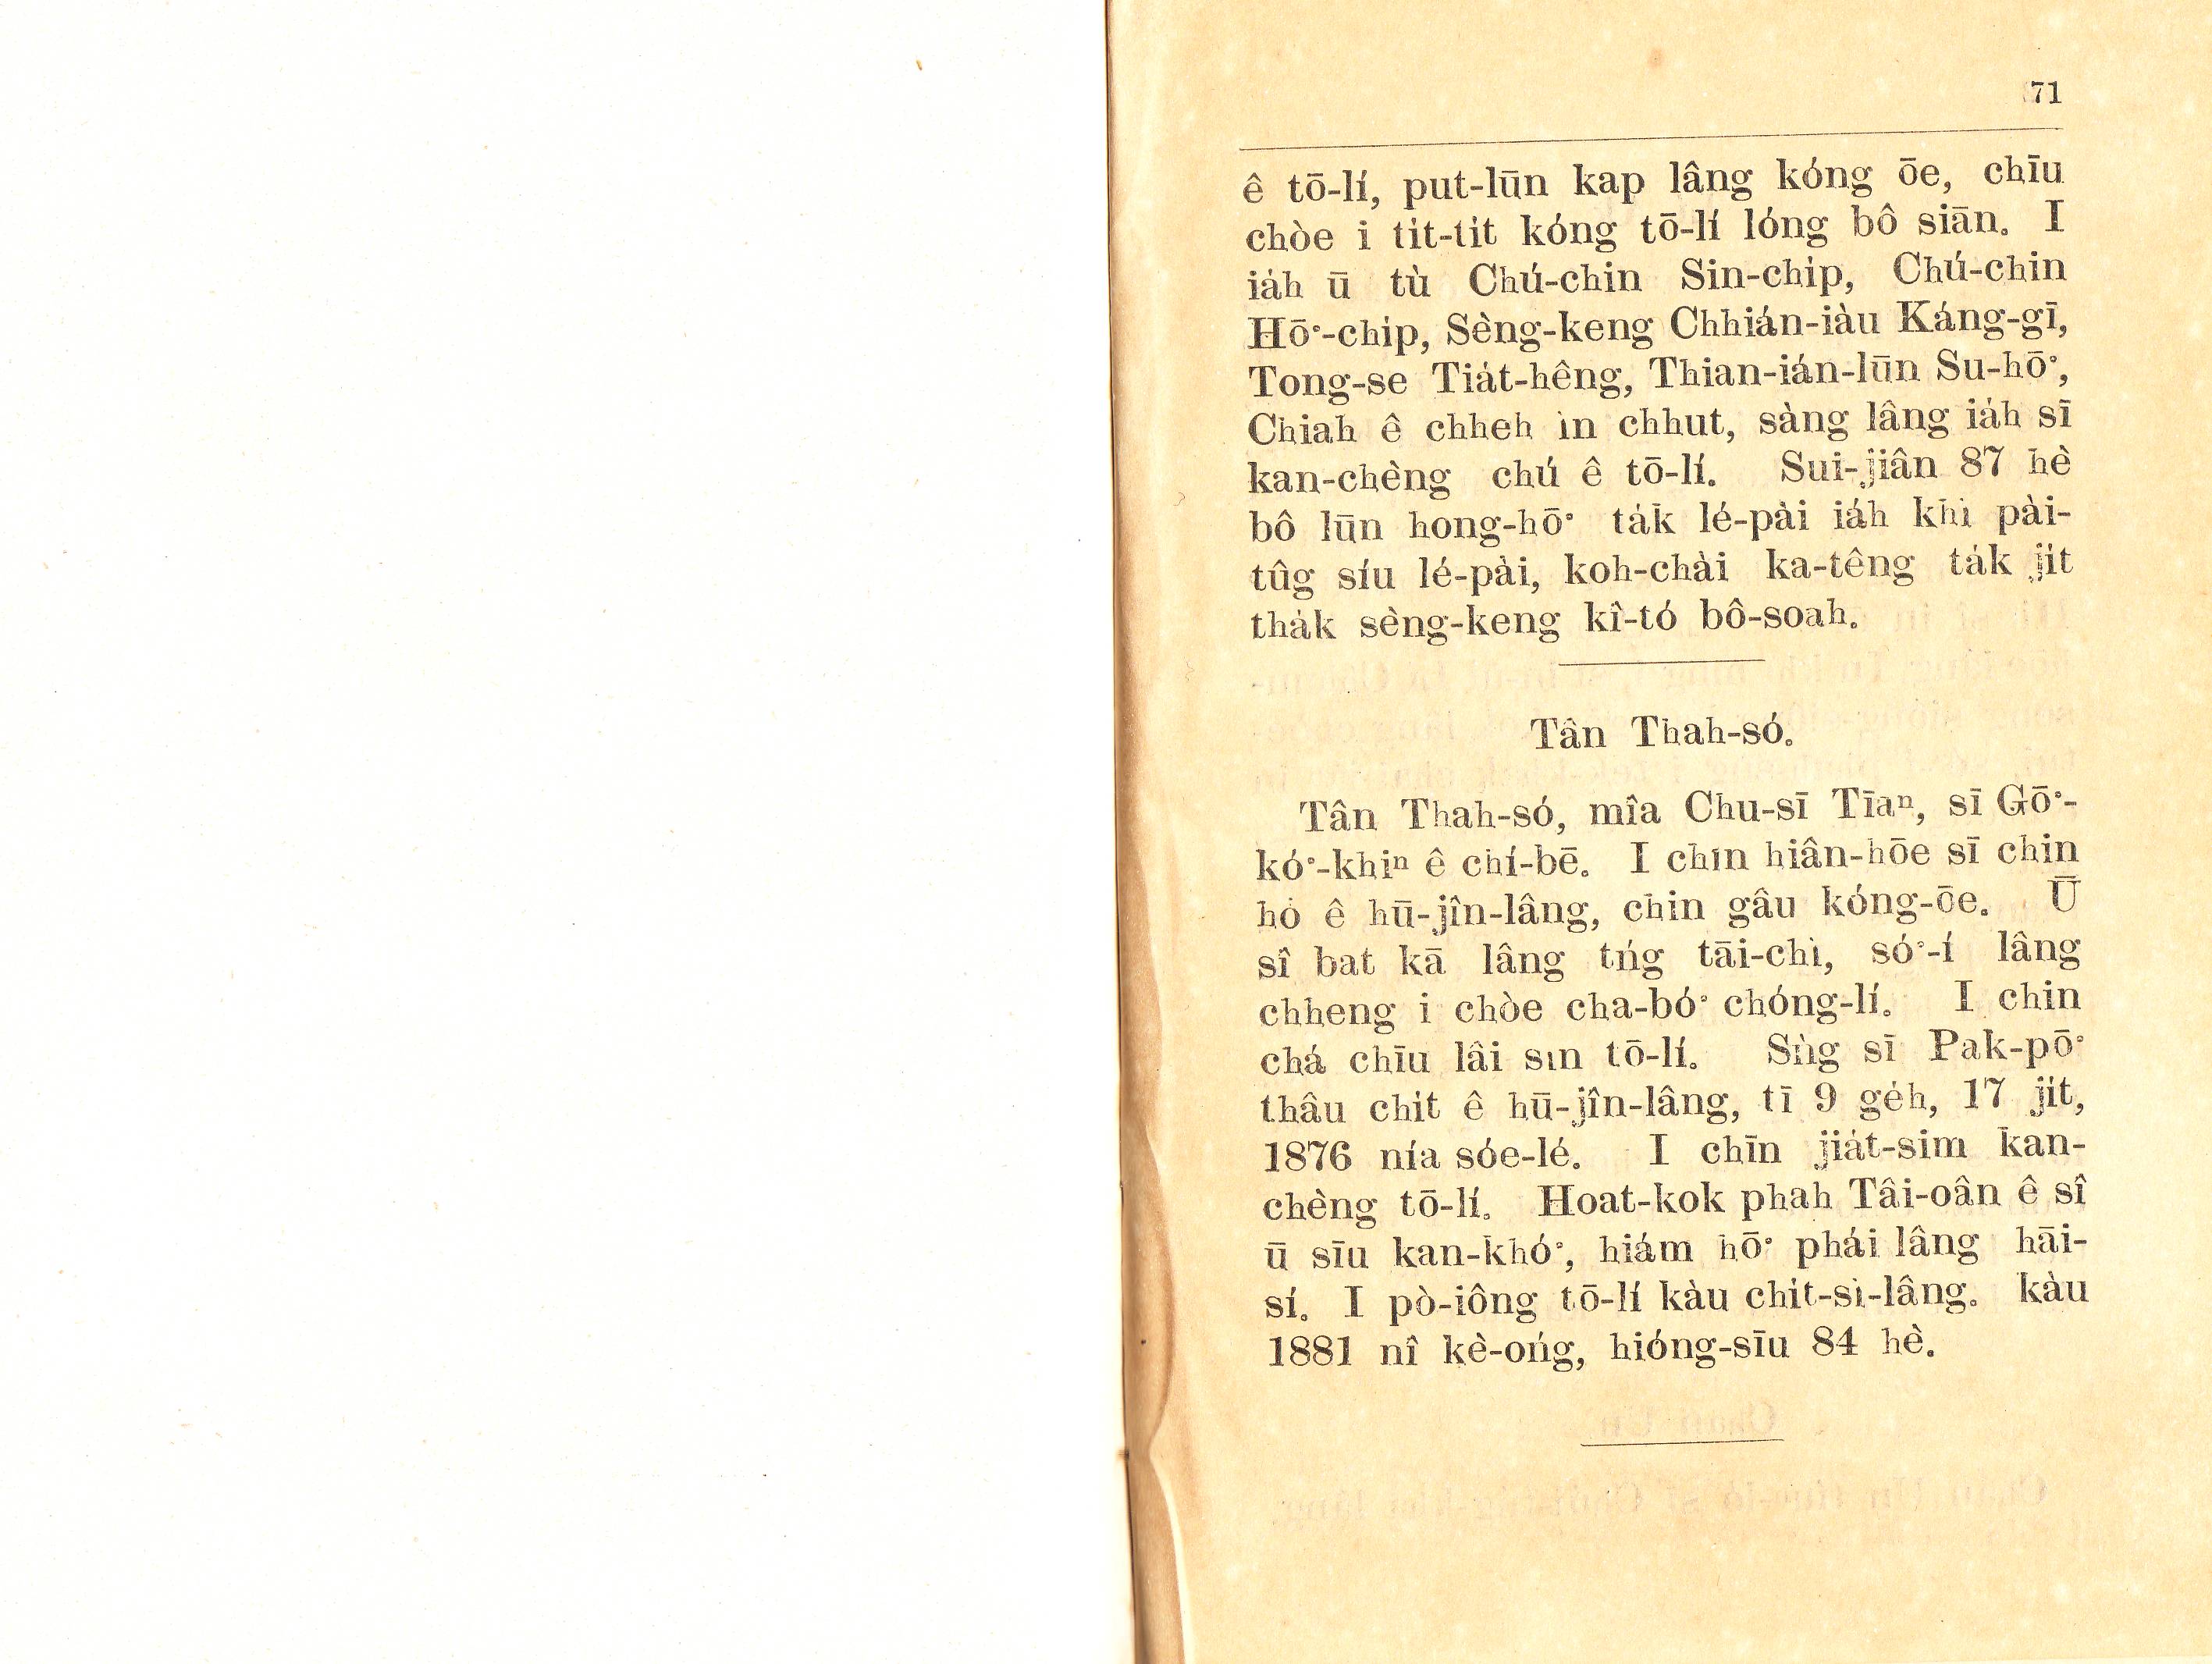 71
ê tō-lí, put-lūn kap lâng kóng ōe, chīu
chòe i ti̍t-ti̍t kóng tō-lí lóng bô siān. I
iáh ū tù Chú-chin Sin-chi̍p, Chú-chin
Hō͘-chi̍p, Sèng-keng Chhián-iàu Káng-gī,
Tong-se Tia̍t-hêng, Thian-ián-lūn Su-hō͘,
Chiah ê chheh ìn chhut, sàng lâng iáh sī
kan-chèng chú ê tō-lí. Sui-jiân 87 hè
bô lūn hong-hō͘ ta̍k lé-pài iáh khì pài-
tûg síu lé-pài, koh-chài ka-têng ta̍k ji̍t
tha̍k sèng-keng kî-tó bô-soah.
Tân Thah-só.
Tân Thah-só, mîa Chu-sī Tīaⁿ, sī Gō͘-
kó͘-khiⁿ ê chí-bē. I chīn hiân-hōe sī chin
hó ê hū-jîn-lâng, chin gâu kóng-ōe. Ū
sî bat kā lâng tńg tāi-chì, só͘-í lâng
chheng i chòe cha-bó͘ chóng-lí. I chin
chá chīu lâi sìn tō-lí. Sǹg sī Pak-pō͘
thâu chi̍t ê hū-jîn-lâng, tī 9 ge̍h, 17 ji̍t,
1876 nía sóe-lé. I chīn jia̍t-sim kan-
chèng tō-lí. Hoat-kok phah Tâi-oân ê sî
ū sīu kan-khó͘, hiám hō͘ phái lâng hāi-
sí. I pò-iông tō-lí kàu chi̍t-sì-lâng. kàu
1881 nî kè-ońg, hióng-sīu 84 hè.